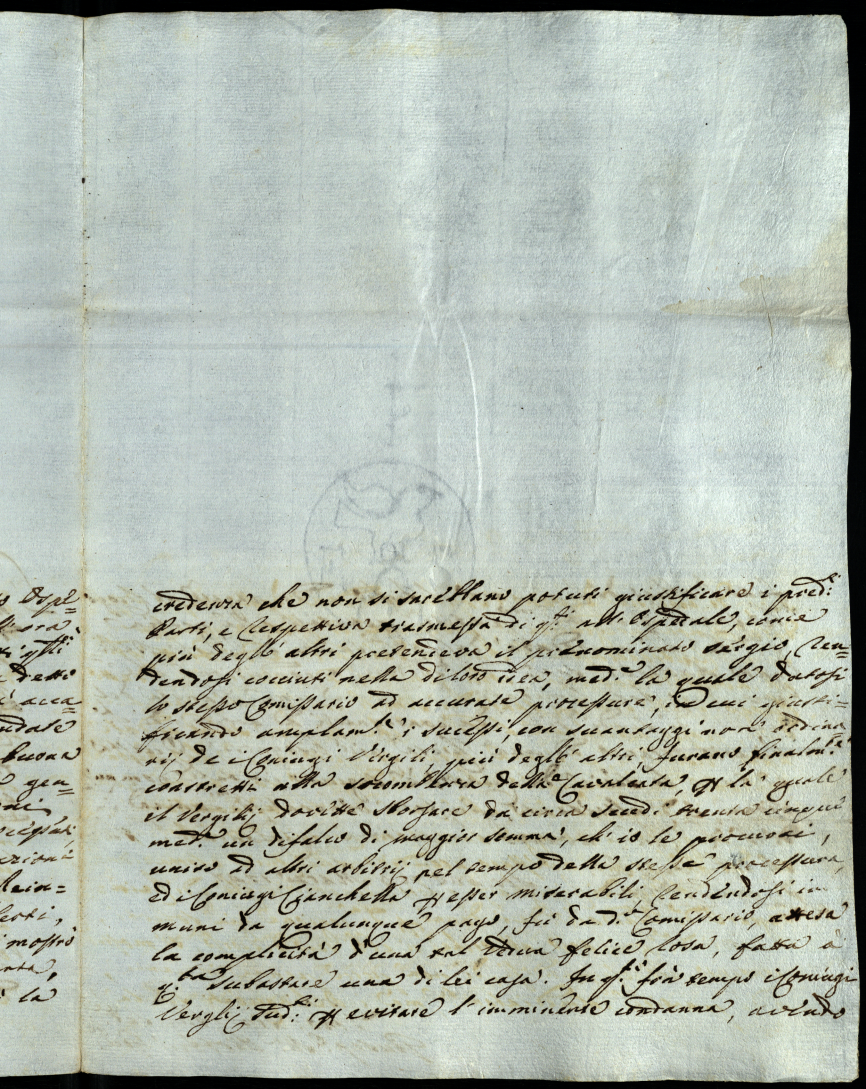 credenza che non si sarebbano potuti giustificare i pred.i
Parti, e respettiva trasmessa di q.ti all'Ospedale, come
più degl'altri pretendeva il prenominato Sergio, ren=
dendosi cociuti nella di loro idea, med.e la quale datosi
lo stesso Comissario ad accurata processura, ed ivi giusti=
ficando amplam.e i sucessi, con svantaggi non ordina=
rij de i Coniugi Vergilj, più degl'altri, furano finalm.e
constretti alla socombenza della Cavalcata, p la quale
il Vergilij dovette sborsare da circa scudi trenta cinque
med.e un difalco di maggior somma, ch'io le procurai,
unito ad altri arbitrij nel tempo della stessa processura,
ed i Coniugi Cianchetta p esser miserabili, rendendosi im
muni da qualunque pago, fù da d.o Comissario, attesa
la complicità d'una tal Felice Rosa, fatta à
q.ta subastare una di lei casa. In q.to frà tempo i Coniugi
Vergilj sud.i p evitare l'imminente condanna, avendo
Ospe=
q.sti
detto
acca=
buona
gen=
Rein=
mostrò
la